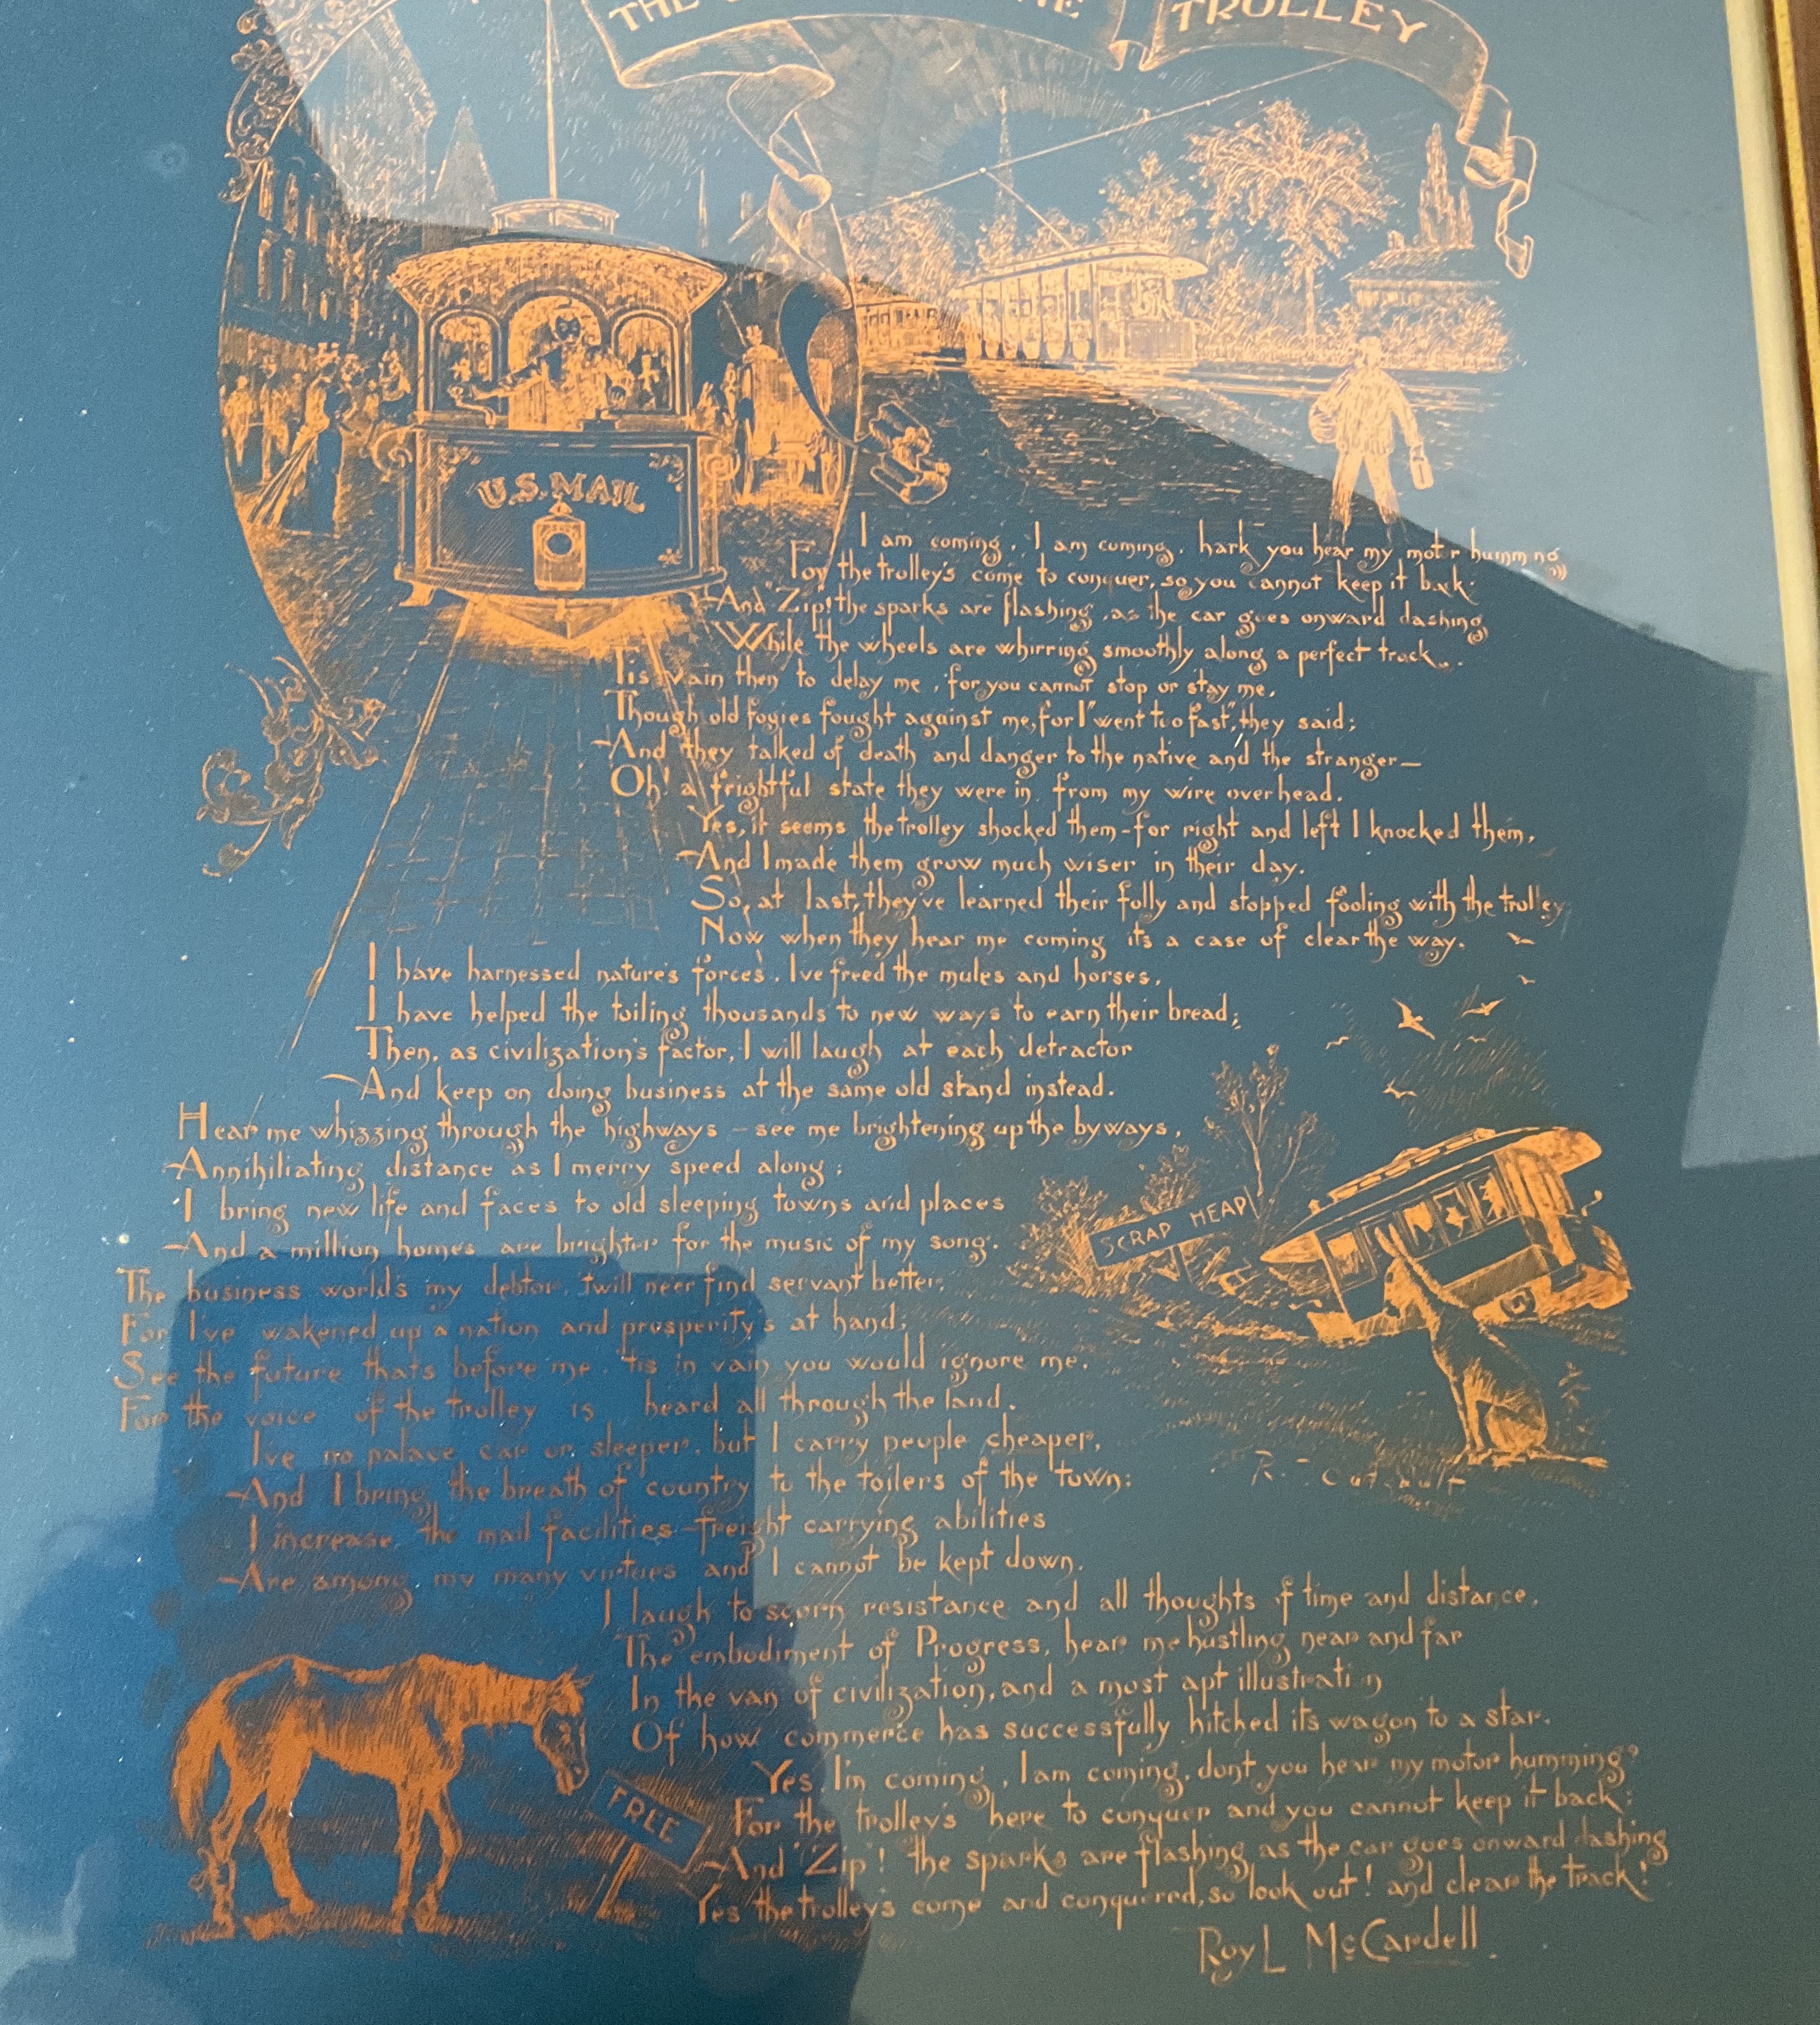 THE
TROLLEY
U.S. MAIL
I am coming, I am coming, hark you hear my mot r humm ng
For the trolley's come to conquer, so you cannot keep it back:
And "Zip"! the sparks are flashing, as the car goes onward dashing
While the wheels are whirring smoothly along a perfect track.
Tis vain then to delay me, for you cannot stop or stay me,
Though old fogies fought against me, for I "went too fast", they said;
And they talked of death and danger to the native and the stranger—
Oh! a frightful state they were in from my wire overhead.
Yes, it seems the trolley shocked them-for right and left I knocked them,
And I made them grow much wiser in their day.
So, at last, they've learned their folly and stopped fooling with the trolley
Now when they hear me coming its a case of clear the way.
I have harnessed nature's forces, Ive freed the mules and horses,
I have helped the toiling thousands to new ways to earn their bread;
Then, as civilization's factor, I will laugh at each detractor
And keep on doing business at the same old stand instead.
Hear me whizzing through the highways – see me brightening up the byways,
Annihiliating distance as I merry speed along;
I bring new life and faces to old sleeping towns and places
And a million homes are brighter for the music of my song.
The business world's my debtor, twill neer find servant better,
For I've wakened up a nation and prosperity's at hand;
See the future thats before me, 'tis in vain you would ignore me,
For the voice of the trolley is heard all through the land.
Ive no palace car or sleeper, but I carry people cheaper,
And I bring the breath of country to the toilers of the town;
I increase the mail facilities-freight carrying abilities
Are among my many virtues and I cannot be kept down.
SCRAP HEAP
I laugh to scorn resistance and all thoughts of time and distance,
The embodiment of Progress, hear me hustling near and far
In the van of civilization, and a most apt illustrati n
Of how commerce has successfully hitched its wagon to a star.
Yes I'm coming, I am coming, dont you hear my motor humming?
For the trolley's here to conquer and you cannot keep it back;
And "Zip"! the sparks are flashing as the car goes onward dashing
Yes the trolley's come and conquered, so look out! and clear the track!
FREE
Roy L McCardell.